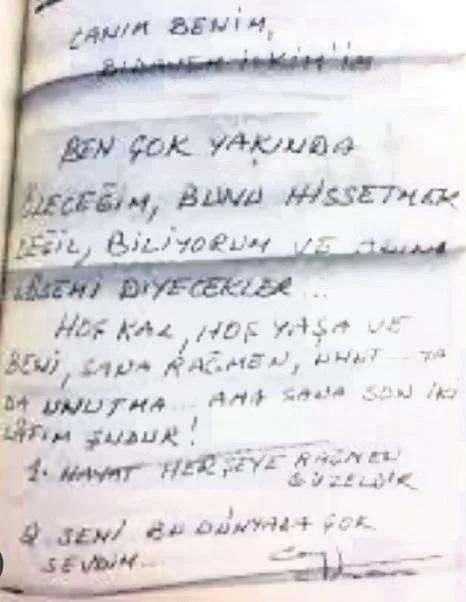 CANIM BENİM,
BİRANEM İLKİM'İM
BEN ÇOK YAKINDA
ÖLECEĞİM, BUNU HİSSETMEK
DEĞİL, BİLİYORUM VE ADINA
LÖSEMİ DİYECEKLER...
HOŞ KAL, HOŞ YAŞA VE
BENİ, SANA RAĞMEN, UNUT... YA
DA UNUTMA... AMA SANA SON İKİ
LAFIM ŞUDUR!
1. HAYAT HERŞEYE RAĞMEN
GÜZELDİR
2) SENİ BU DÜNYADA ÇOK
SEVDİM...